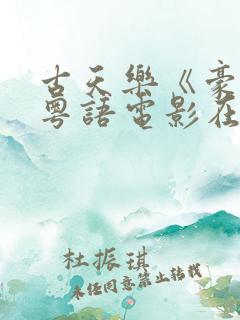 古天樂《豪
粵語電影在
杜振琪
未经同意禁止转载